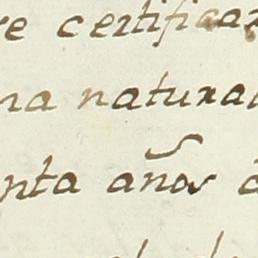 re certificaz
na natural
nta años